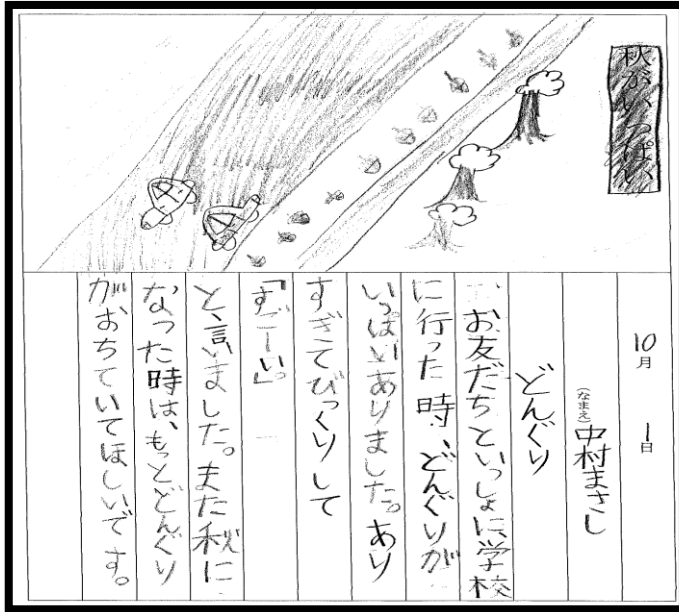 秋がいっぱい
10月 1日
(なまえ)中村まさし
どんぐり
お友だちといっしょに、学校
に行った時、どんぐりが
いっぱいありました。あり
すぎてびっくりして
「すごーい。」
と、言いました。また秋に
なった時は、もっとどんぐり
がおちていてほしいです。